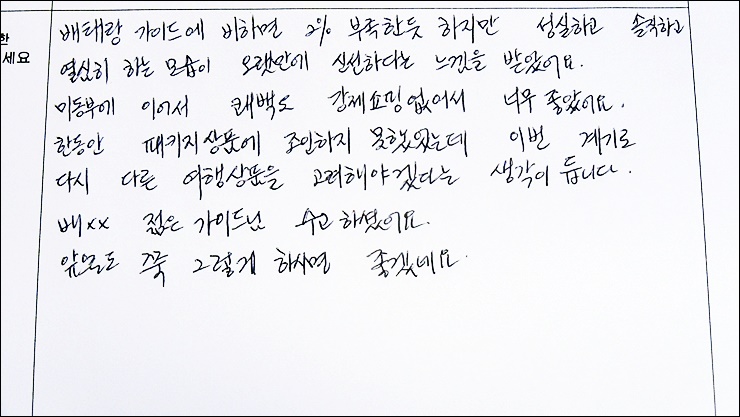 한
세요
배태랑 가이드에 비하면 2% 부족한듯 하지만 성실하고 솔직하고
열심히 하는 모습이 오랫만에 신선하다는 느낌을 받았어요.
미동부에 이어서 퀘백도 강제쇼핑없어서 너무 좋았어요.
한동안 패키지상품에 조인하지 못했었는데 이번 계기로
다시 다른 여행상품을 고려해야겠다는 생각이 듭니다.
배xx 젊은 가이드님 수고하셨어요.
앞으로도 쭈욱 그렇게 하시면 좋겠네요.